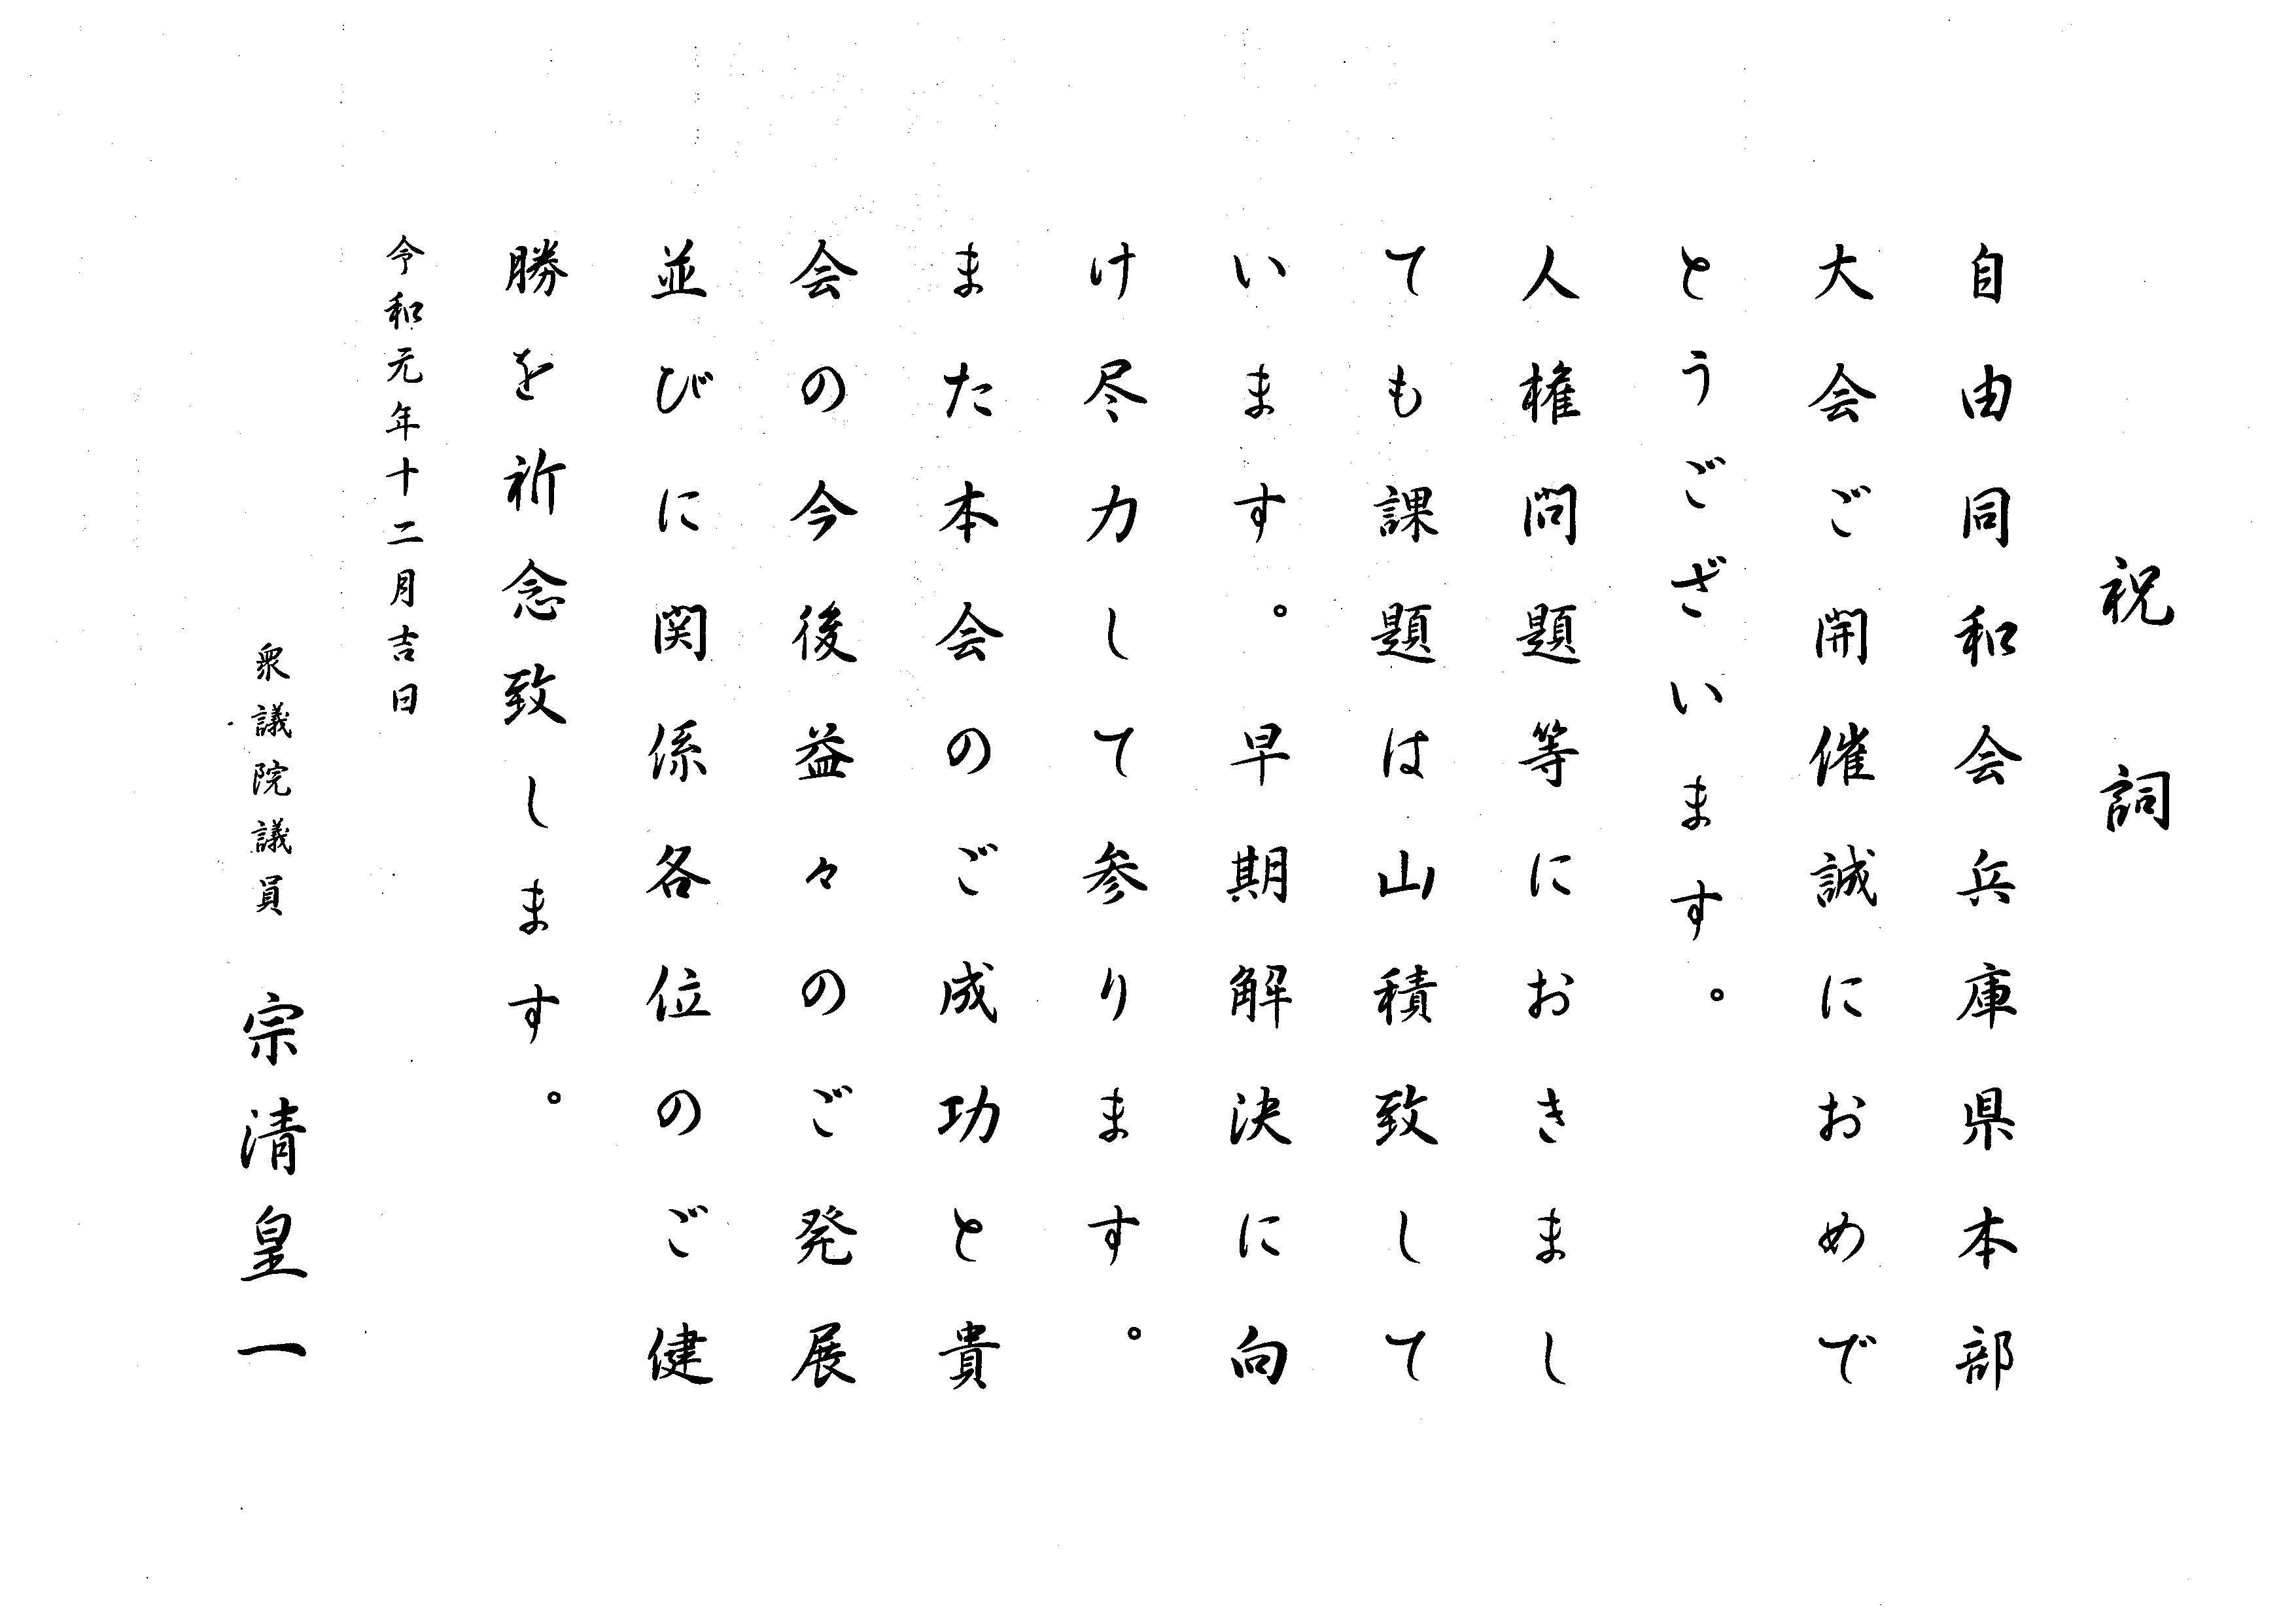 祝詞
自由同和会兵庫県本部
大会ご開催誠におめで
とうございます。
人権問題等におきまし
ても課題は山積致して
います。早期解決に向
け尽力して参ります。
また本会のご成功と貴
会の今後益々のご発展
並びに関係各位のご健
勝を祈念致します。
令和元年十二月吉日
衆議院議員 宗清皇一